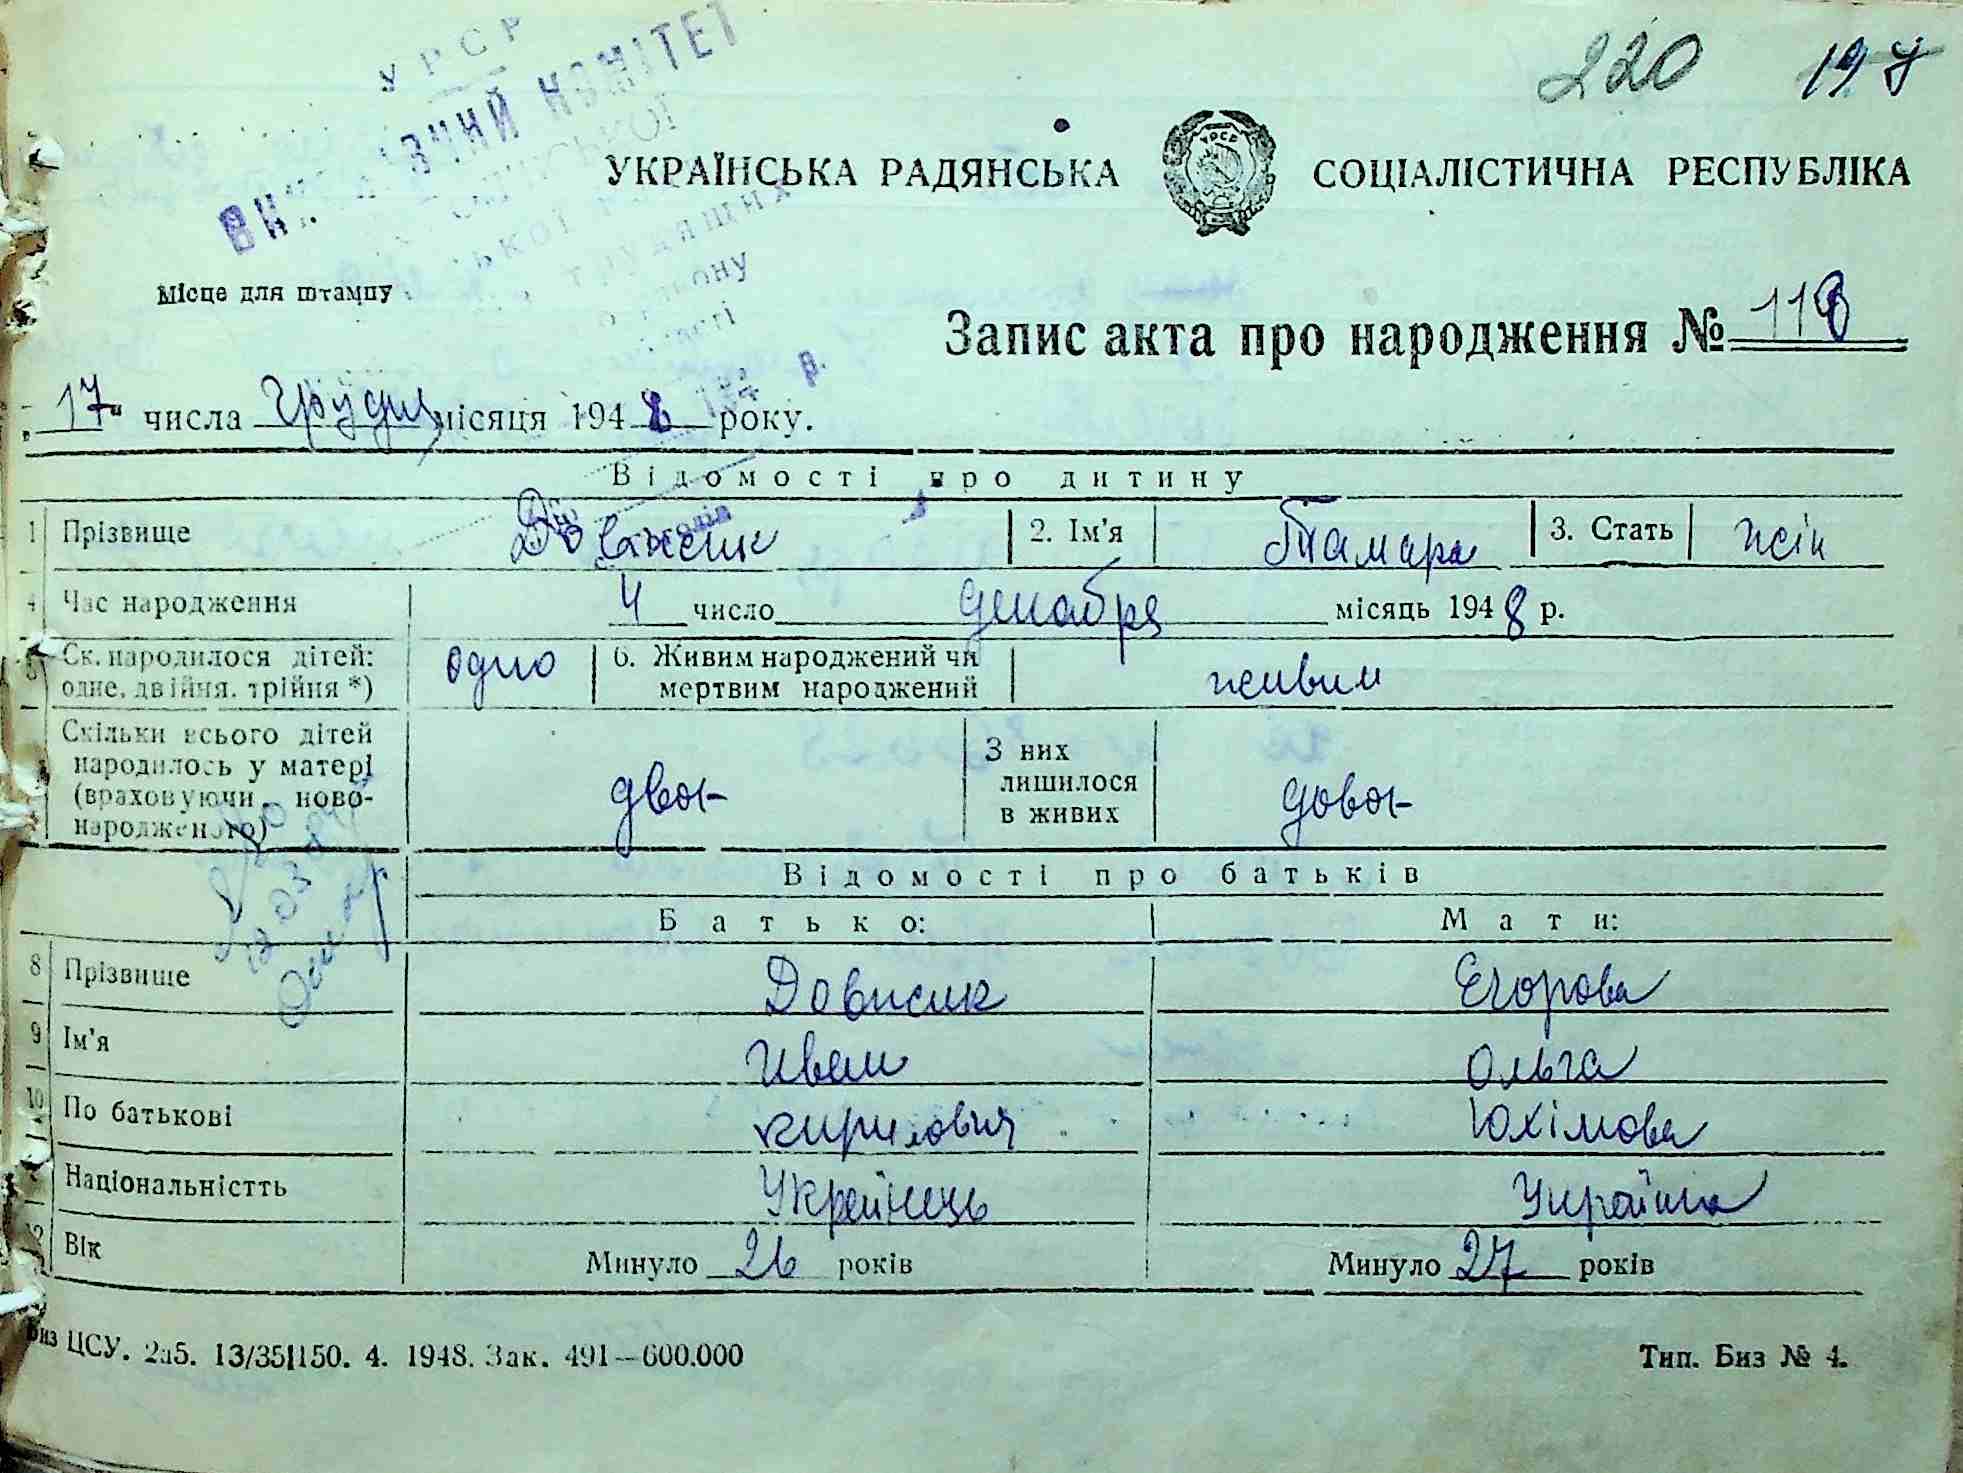 220 197
УРСР
ВИ ВЧИЙ КОМІТЕТ
УКРАЇНСЬКА РАДЯНСЬКА СОЦІАЛІСТИЧНА РЕСПУБЛІКА
Місце для штампу
Запис акта про народження № 118
„17“ числа грудня місяця 1948 року.
Відомості про дитину
1 Прізвище Довжик 2. Ім'я Тамара 3. Стать жін
4 Час народження 4 число декабря місяць 1948 р.
5 Ск. народилося дітей: одно 6. Живим народжений чи живим
одне, двійня, трійня *) мертвим народжений
Скільки всього дітей З них
народилось у матері двоє лишилося двоє
(враховуючи ново- в живих
народженого)
Відомості про батьків
Батько: Мати:
8 Прізвище Довжик Єгорова
9 Ім'я Иван Ольга
10 По батькові Кирилович Юхімова
Національністть Українець Українка
12 Вік Минуло 26 років Минуло 27 років
Биз ЦСУ. 2а5. 13/35|150. 4. 1948. Зак. 491—600.000 Тип. Биз № 4.